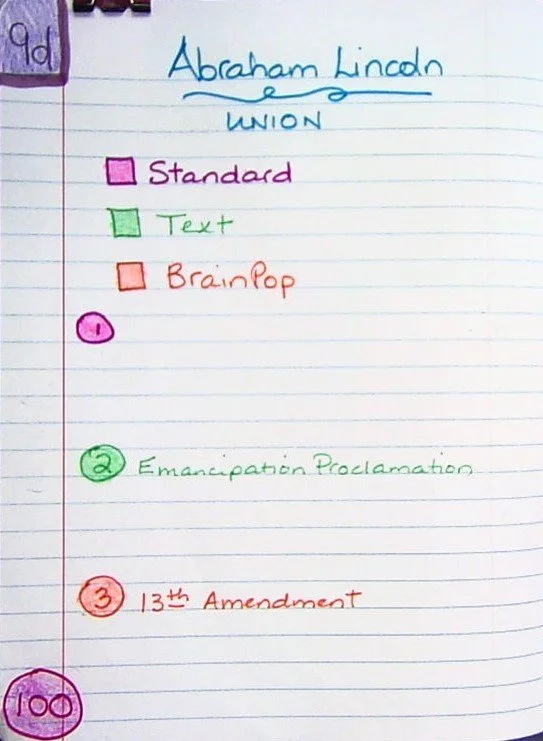 9d
Abraham Lincoln
UNION
Standard
Text
BrainPop
1
2 Emancipation Proclamation
3 13th Amendment
100